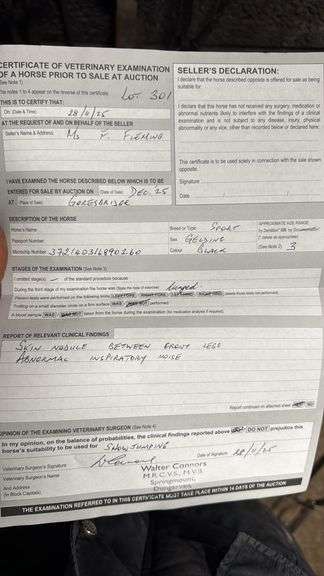 CERTIFICATE OF VETERINARY EXAMINATION
OF A HORSE PRIOR TO SALE AT AUCTION
(See Note 1)
The notes 1 to 4 appear on the reverse of this certificate. LOT 301
THIS IS TO CERTIFY THAT:
On: Date & Time) 28/11/25
AT THE REQUEST OF AND ON BEHALF OF THE SELLER
Seller's Name & Address: Ms F. FLEMING
I HAVE EXAMINED THE HORSE DESCRIBED BELOW WHICH IS TO BE
ENTERED FOR SALE BY AUCTION ON (Date of Sale) DEC. 25
AT (Place of Sale) GORESBRIDGE
SELLER'S DECLARATION:
I declare that the horse described opposite is offered for sale as being
suitable for
I declare that this horse has not received any surgery, medication or
abnormal nutrients likely to interfere with the findings of a clinical
examination and is not subject to any disease, injury, physical
abnormality or any vice, other than recorded below or declared here:
This certificate to be used solely in connection with the sale shown
opposite.
Signature
Date
DESCRIPTION OF THE HORSE
Horse's Name
Passport Number
Microchip Number
Breed or Type SPORT
Sex GELDING
Colour BLACK
APPROXIMATE AGE RANGE
by Dentition* OR by Documentation
(* delete as appropriate)
(See Note 2) 3
STAGES OF THE EXAMINATION (See Note 3)
I omitted stage(s) — of the standard procedure because
During the first stage of my examination the horse was (State the mode of exercise) lunged
Flexion tests were performed on the following limbs
Trotting on a small diameter circle on a firm surface WAS / WAS NOT performed
A blood sample WAS / WAS NOT taken from the horse during the examination (for medication analysis if required).
REPORT OF RELEVANT CLINICAL FINDINGS
SKIN NODULE BETWEEN FRONT LEGS
ABNORMAL INSPIRATORY NOISE
Report continued on attached sheet
OPINION OF THE EXAMINING VETERINARY SURGEON (See Note 4)
In my opinion, on the balance of probabilities, the clinical findings reported above DO / DO NOT prejudice this
horse's suitability to be used for SHOWJUMPING
Veterinary Surgeon's Signature
Date of Signature 28/11/25
Veterinary Surgeon's Name
And Address
(in Block Capitals)
Walter Connors
M.R.C.V.S., M.V.B.
Springmount,
Dungarvan
THE EXAMINATION REFERRED TO IN THIS CERTIFICATE MUST TAKE PLACE WITHIN 14 DAYS OF THE AUCTION